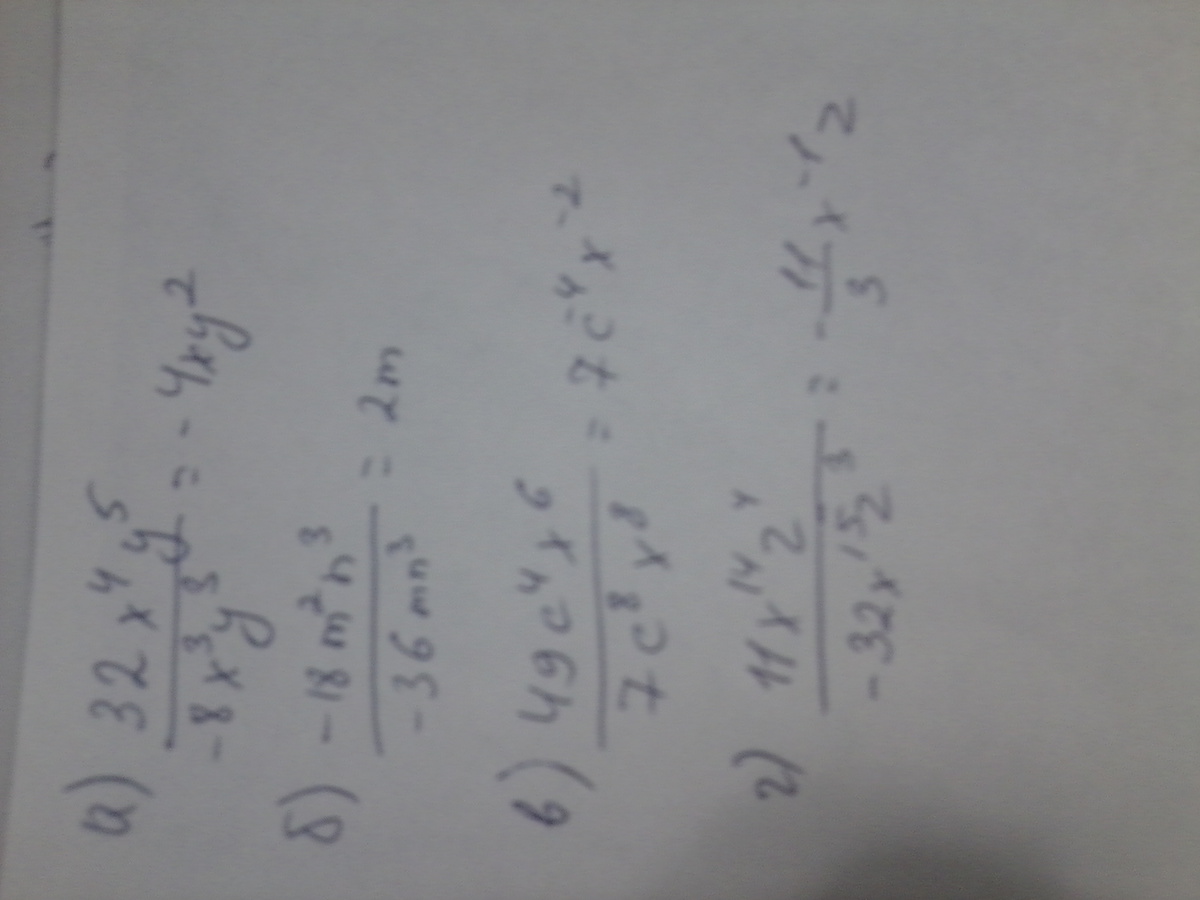 а) 32x⁴y⁵ / -8x³y³ = -4xy²
б) -18m²n³ / -36mn³ = 2m
в) 49c⁴x⁶ / 7c⁸x⁸ = 7c⁻⁴x⁻²
г) 11x¹⁴z⁴ / -32x¹⁵z³ = -11/3 x⁻¹z